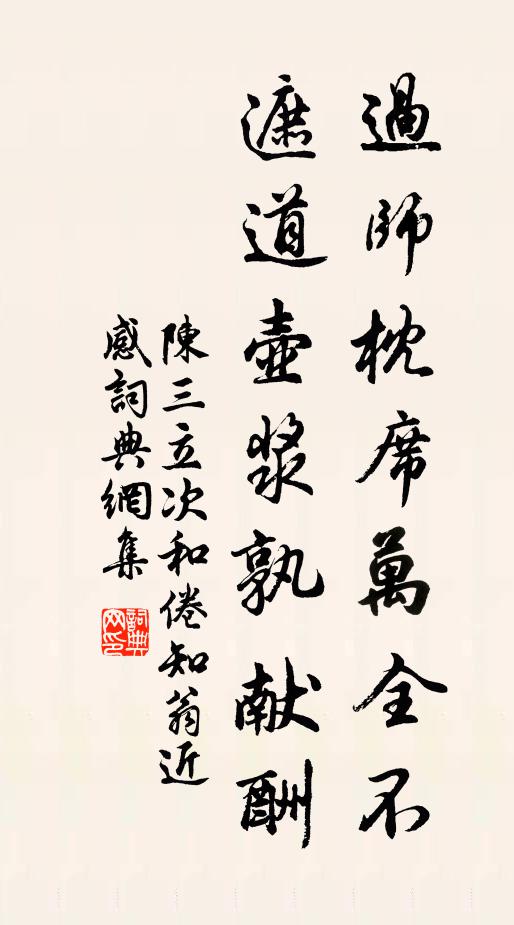 過師枕席萬全不
遮道壺漿孰献酬
陳三立次和倦知翁近
感詞典網集
詞典
网印